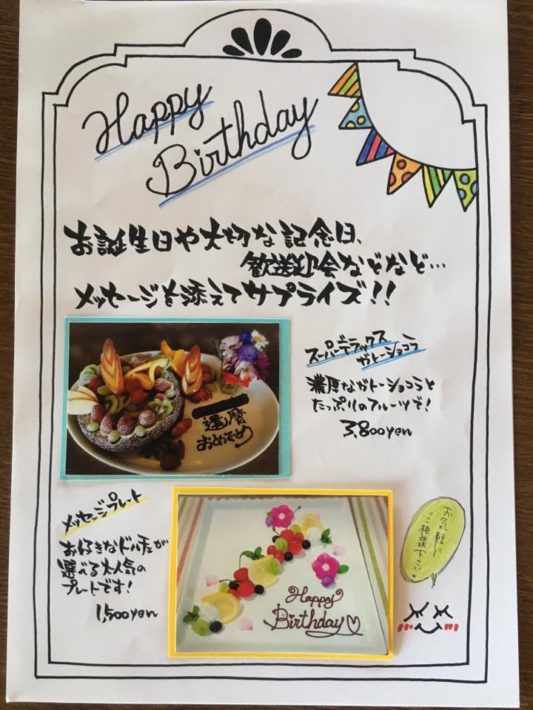 Happy
Birthday
お誕生日や大切な記念日、
歓送迎会などなど…
メッセージを添えてサプライズ!!
スーパーデラックス
ガトーショコラ
濃厚なガトーショコラと
たっぷりのフルーツで!
3,800yen
還暦
おめでとう
メッセージプレート
お好きなドルチェが
選べる大人気の
プレートです!
1,500yen
Happy
Birthday♡
お気軽に
ご相談下さい